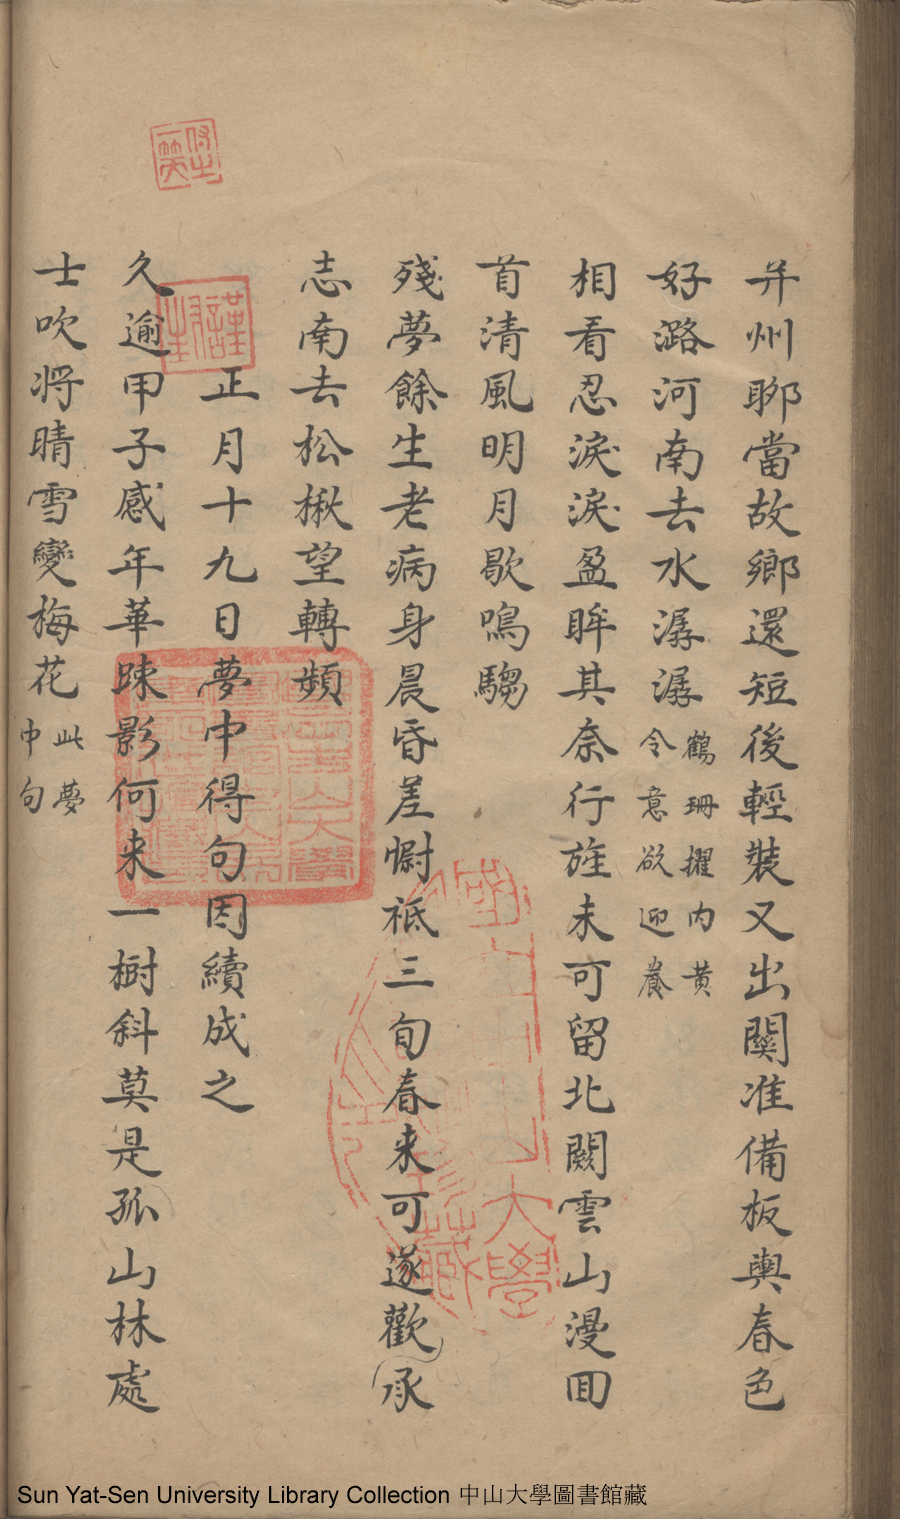 并州聊當故鄉還短後輕裝又出關准備板輿春色
好潞河南去水潺潺鶴珊擢内黄
令意欲迎養
相看忍淚淚盈眸其奈行旌未可留北闕雲山漫囬
首清風明月歇鳴騶
殘夢餘生老病身晨昏差慰祗三旬春来可遂歡承
志南去松楸望轉頻
正月十九日夢中得句因續成之
久逾甲子感年華踈影何来一樹斜莫是孤山林處
士吹将晴雪變梅花此夢
中句
大學
藏
Sun Yat-Sen University Library Collection 中山大學圖書館藏